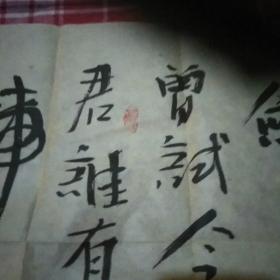 曾試今
君誰有
事